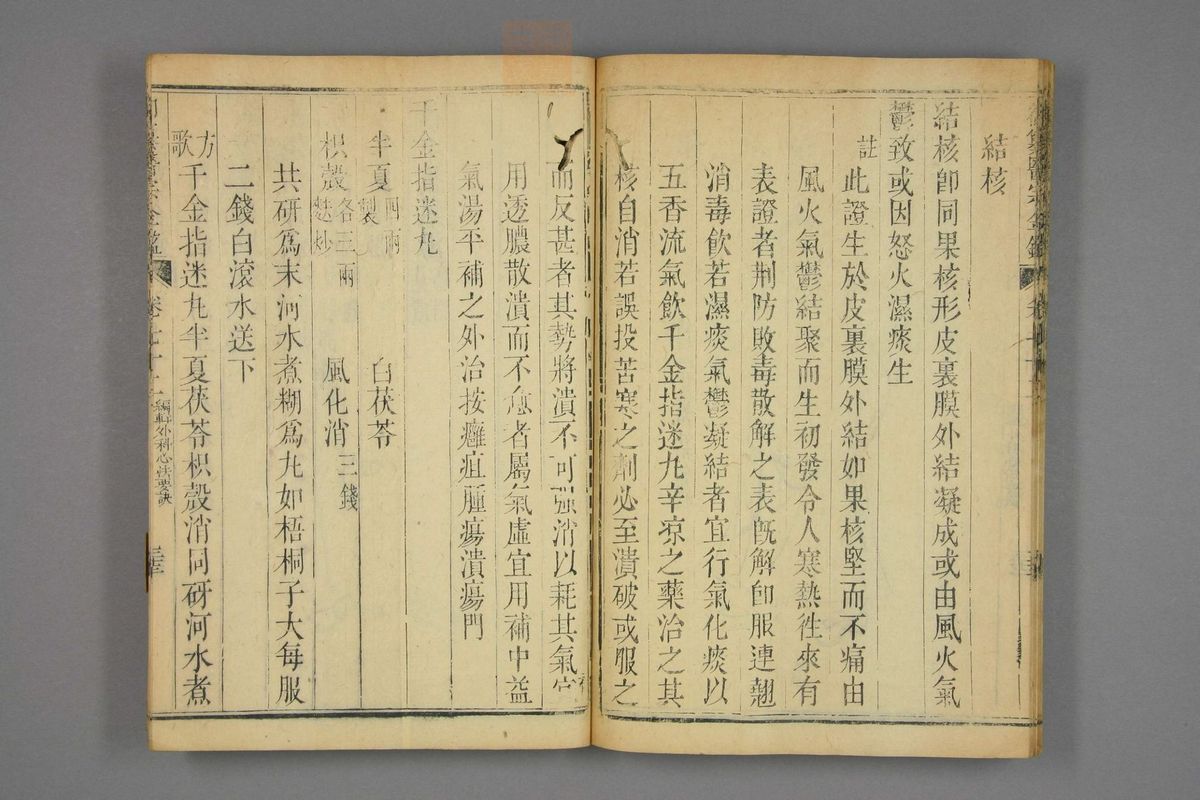 結核
結核卽同果核形皮裏膜外結凝成或由風火氣
鬱致或因怒火濕痰生
註
此證生於皮裏膜外結如果核堅而不痛由
風火氣鬱結聚而生初發令人寒熱徃來有
表證者荆防敗毒散解之表旣解卽服連翹
消毒飲若濕痰氣鬱凝結者宜行氣化痰以
五香流氣飲千金指迷丸辛凉之藥治之其
核自消若誤投苦寒之劑必至潰破或服之
而反甚者其勢將潰不可強消以耗其氣宜
用透膿散潰而不愈者屬氣虛宜用補中益
氣湯平補之外治按癰疽腫瘍潰瘍門
千金指迷丸
半夏 四兩製 白茯苓
枳殼 各三兩麩炒 風化消 三錢
共研爲末河水煮糊爲丸如梧桐子大每服
二錢白滾水送下
方歌
千金指迷丸半夏茯苓枳殼消同硏河水煮
編輯外科心法要訣